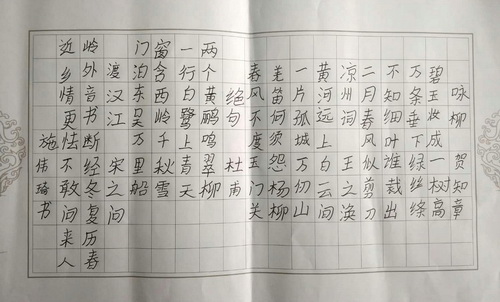 咏柳 贺知章
碧玉妆成一树高
万条垂下绿丝绦
不知细叶谁裁出
二月春风似剪刀
凉州词 王之涣
黄河远上白云间
一片孤城万仞山
羌笛何须怨杨柳
春风不度玉门关
绝句 杜甫
两个黄鹂鸣翠柳
一行白鹭上青天
窗含西岭千秋雪
门泊东吴万里船
渡汉江 宋之问
岭外音书断经冬复历春
近乡情更怯不敢问来人
施伟琦书